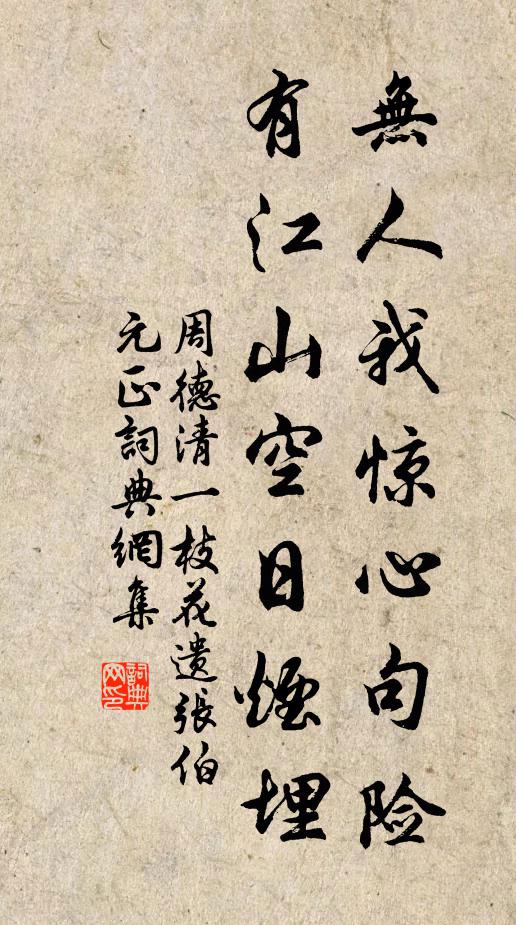 無人我惊心句险
有江山空日煙埋
周德清一枝花遗張伯
元正詞典網集
詞典網印